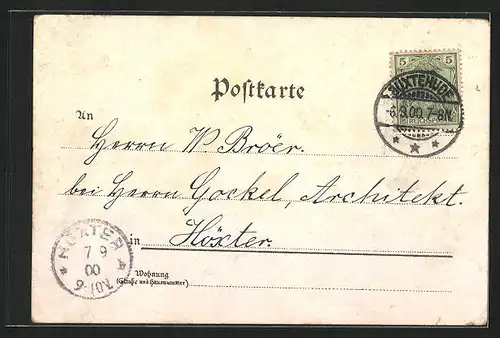 Postkarte
5 5
BUXTEHUDE
-6.9.00 7-8N.
An
Herrn W. Broër.
bei Herrn Gockel, Architekt.
in Höxter.
HÖXTER
7 9
00
9-10V.
Wohnung
(Straße und Hausnummer)